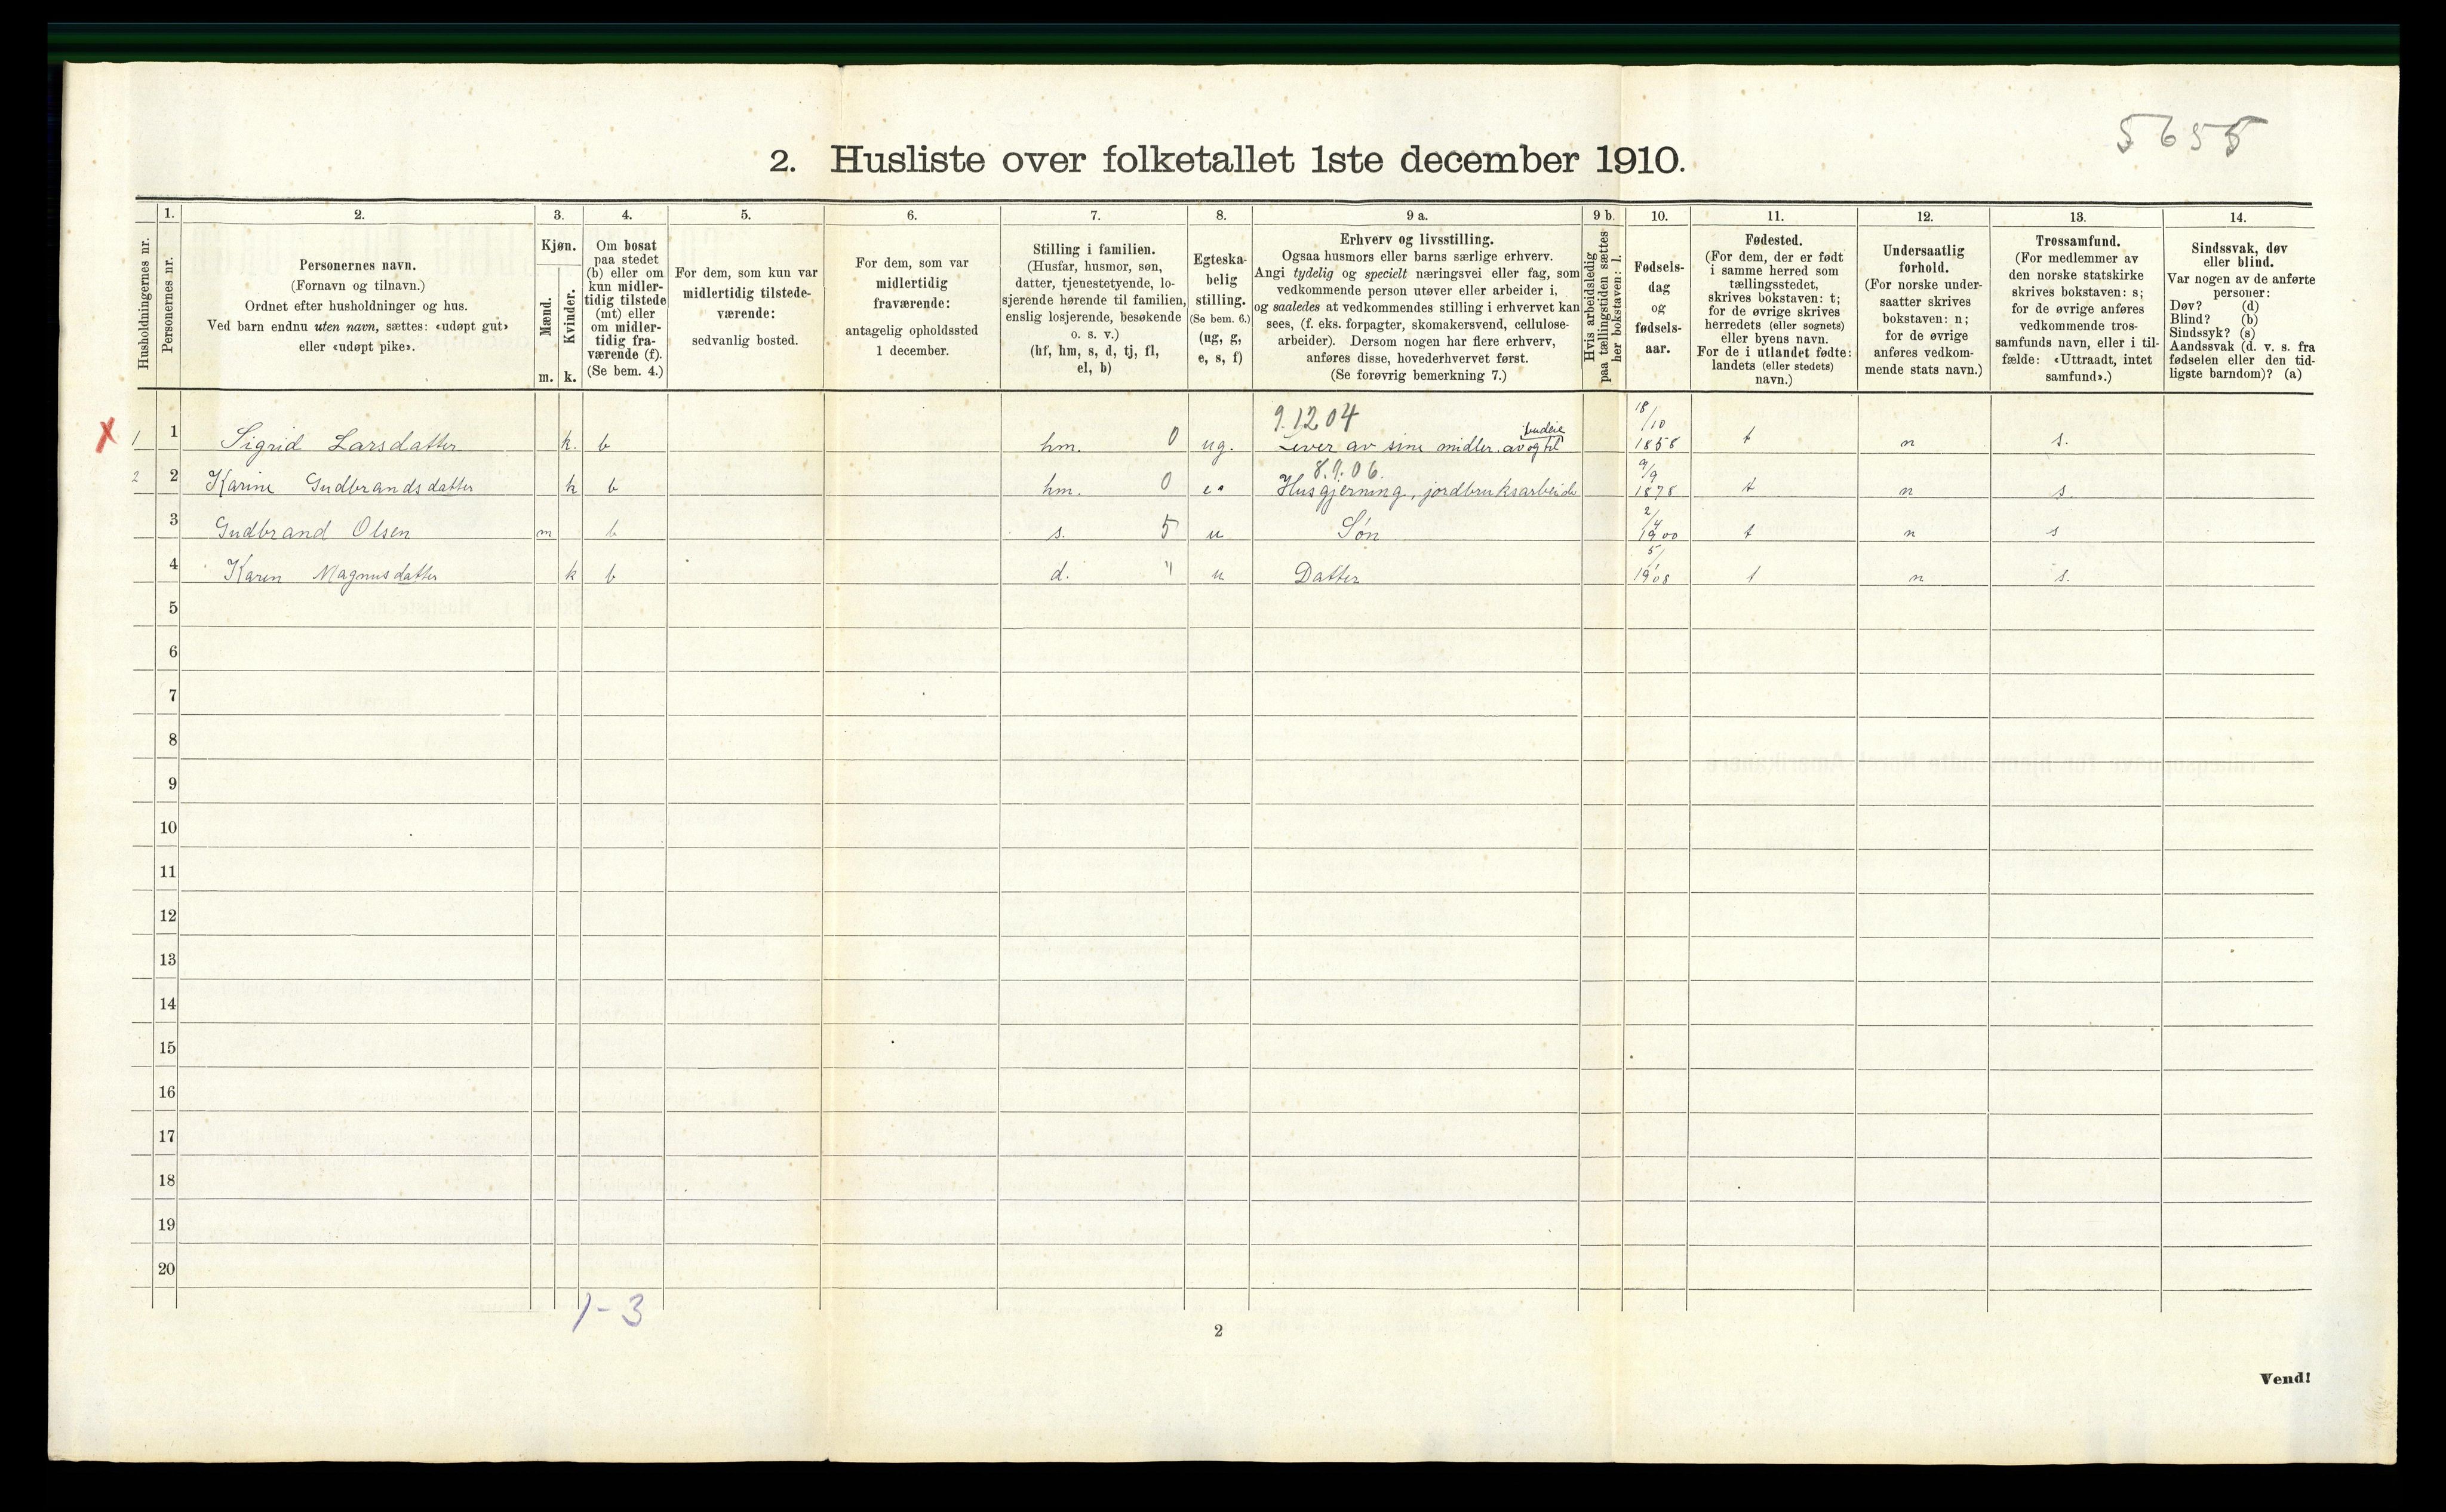 5655
2. Husliste over folketallet 1ste december 1910.
Husholdningernes nr.
1.
Personernes nr.
2.
Personernes navn.
(Fornavn og tilnavn.)
Ordnet efter husholdninger og hus.
Ved barn endnu uten navn, sættes: «udøpt gut»
eller «udøpt pike».
3.
Kjøn.
Mænd.
Kvinder.
m. k.
4.
Om bosat
paa stedet
(b) eller om
kun midler-
tidig tilstede
(mt) eller
om midler-
tidig fra-
værende (f).
(Se bem. 4.)
5.
For dem, som kun var
midlertidig tilstede-
værende:
sedvanlig bosted.
6.
For dem, som var
midlertidig
fraværende:
antagelig opholdssted
1 december.
7.
Stilling i familien.
(Husfar, husmor, søn,
datter, tjenestetyende, lo-
sjerende hørende til familien,
enslig losjerende, besøkende
o. s. v.)
(hf, hm, s, d, tj, fl,
el, b)
8.
Egteska-
belig
stilling.
(Se bem. 6.)
(ug, g,
e, s, f)
9 a.
Erhverv og livsstilling.
Ogsaa husmors eller barns særlige erhverv.
Angi tydelig og specielt næringsvei eller fag, som
vedkommende person utøver eller arbeider i,
og saaledes at vedkommendes stilling i erhvervet kan
sees, (f. eks. forpagter, skomakersvend, cellulose-
arbeider). Dersom nogen har flere erhverv,
anføres disse, hovederhvervet først.
(Se forøvrig bemerkning 7.)
9 b.
Hvis arbeidsledig
paa tællingstiden sættes
her bokstaven: l.
10.
Fødsels-
dag
og
fødsels-
aar.
11.
Fødested.
(For dem, der er født
i samme herred som
tællingsstedet,
skrives bokstaven: t;
for de øvrige skrives
herredets (eller sognets)
eller byens navn.
For de i utlandet fødte:
landets (eller stedets)
navn.)
12.
Undersaatlig
forhold.
(For norske under-
saatter skrives
bokstaven: n;
for de øvrige
anføres vedkom-
mende stats navn.)
13.
Trossamfund.
(For medlemmer av
den norske statskirke
skrives bokstaven: s;
for de øvrige anføres
vedkommende tros-
samfunds navn, eller i til-
fælde: «Uttraadt, intet
samfund».)
14.
Sindssvak, døv
eller blind.
Var nogen av de anførte
personer:
Døv? (d)
Blind? (b)
Sindssyk? (s)
Aandssvak (d. v. s. fra
fødselen eller den tid-
ligste barndom)? (a)
9.1204
budeie
18/10
X 1 1 Sigrid Larsdatter k. b hm. 0 ug. Lever av sine midler. av og til 1858 t n s.
8.9.06.
9/9
2 2 Karine Gudbrandsdatter k b hm. 0 e. Husgjerning, jordbruksarbeide 1878 t n s.
2/4
3 Gudbrand Olsen m b s. 5 u Søn 1900 t n s
5/1
4 Karen Magnusdatter k b d. " u Datter 1908 t n s.
5
6
7
8
9
10
11
12
13
14
15
16
17
18
19
20
1-3
2
Vend!